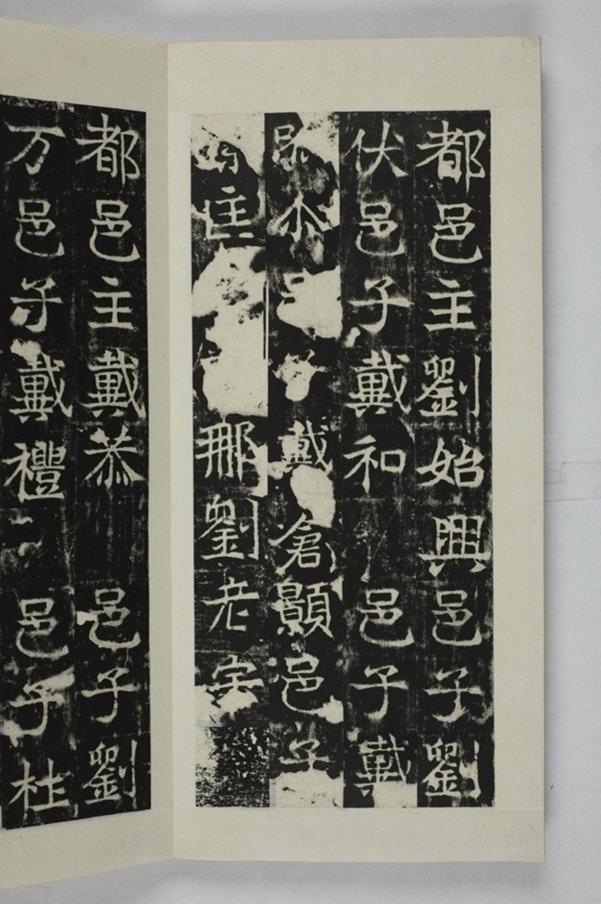 都邑主劉始興邑子劉
伏邑子戴和邑子戴
戴倉顯邑子
主那劉老
都邑主戴恭邑子劉
万邑子戴禮邑子杜